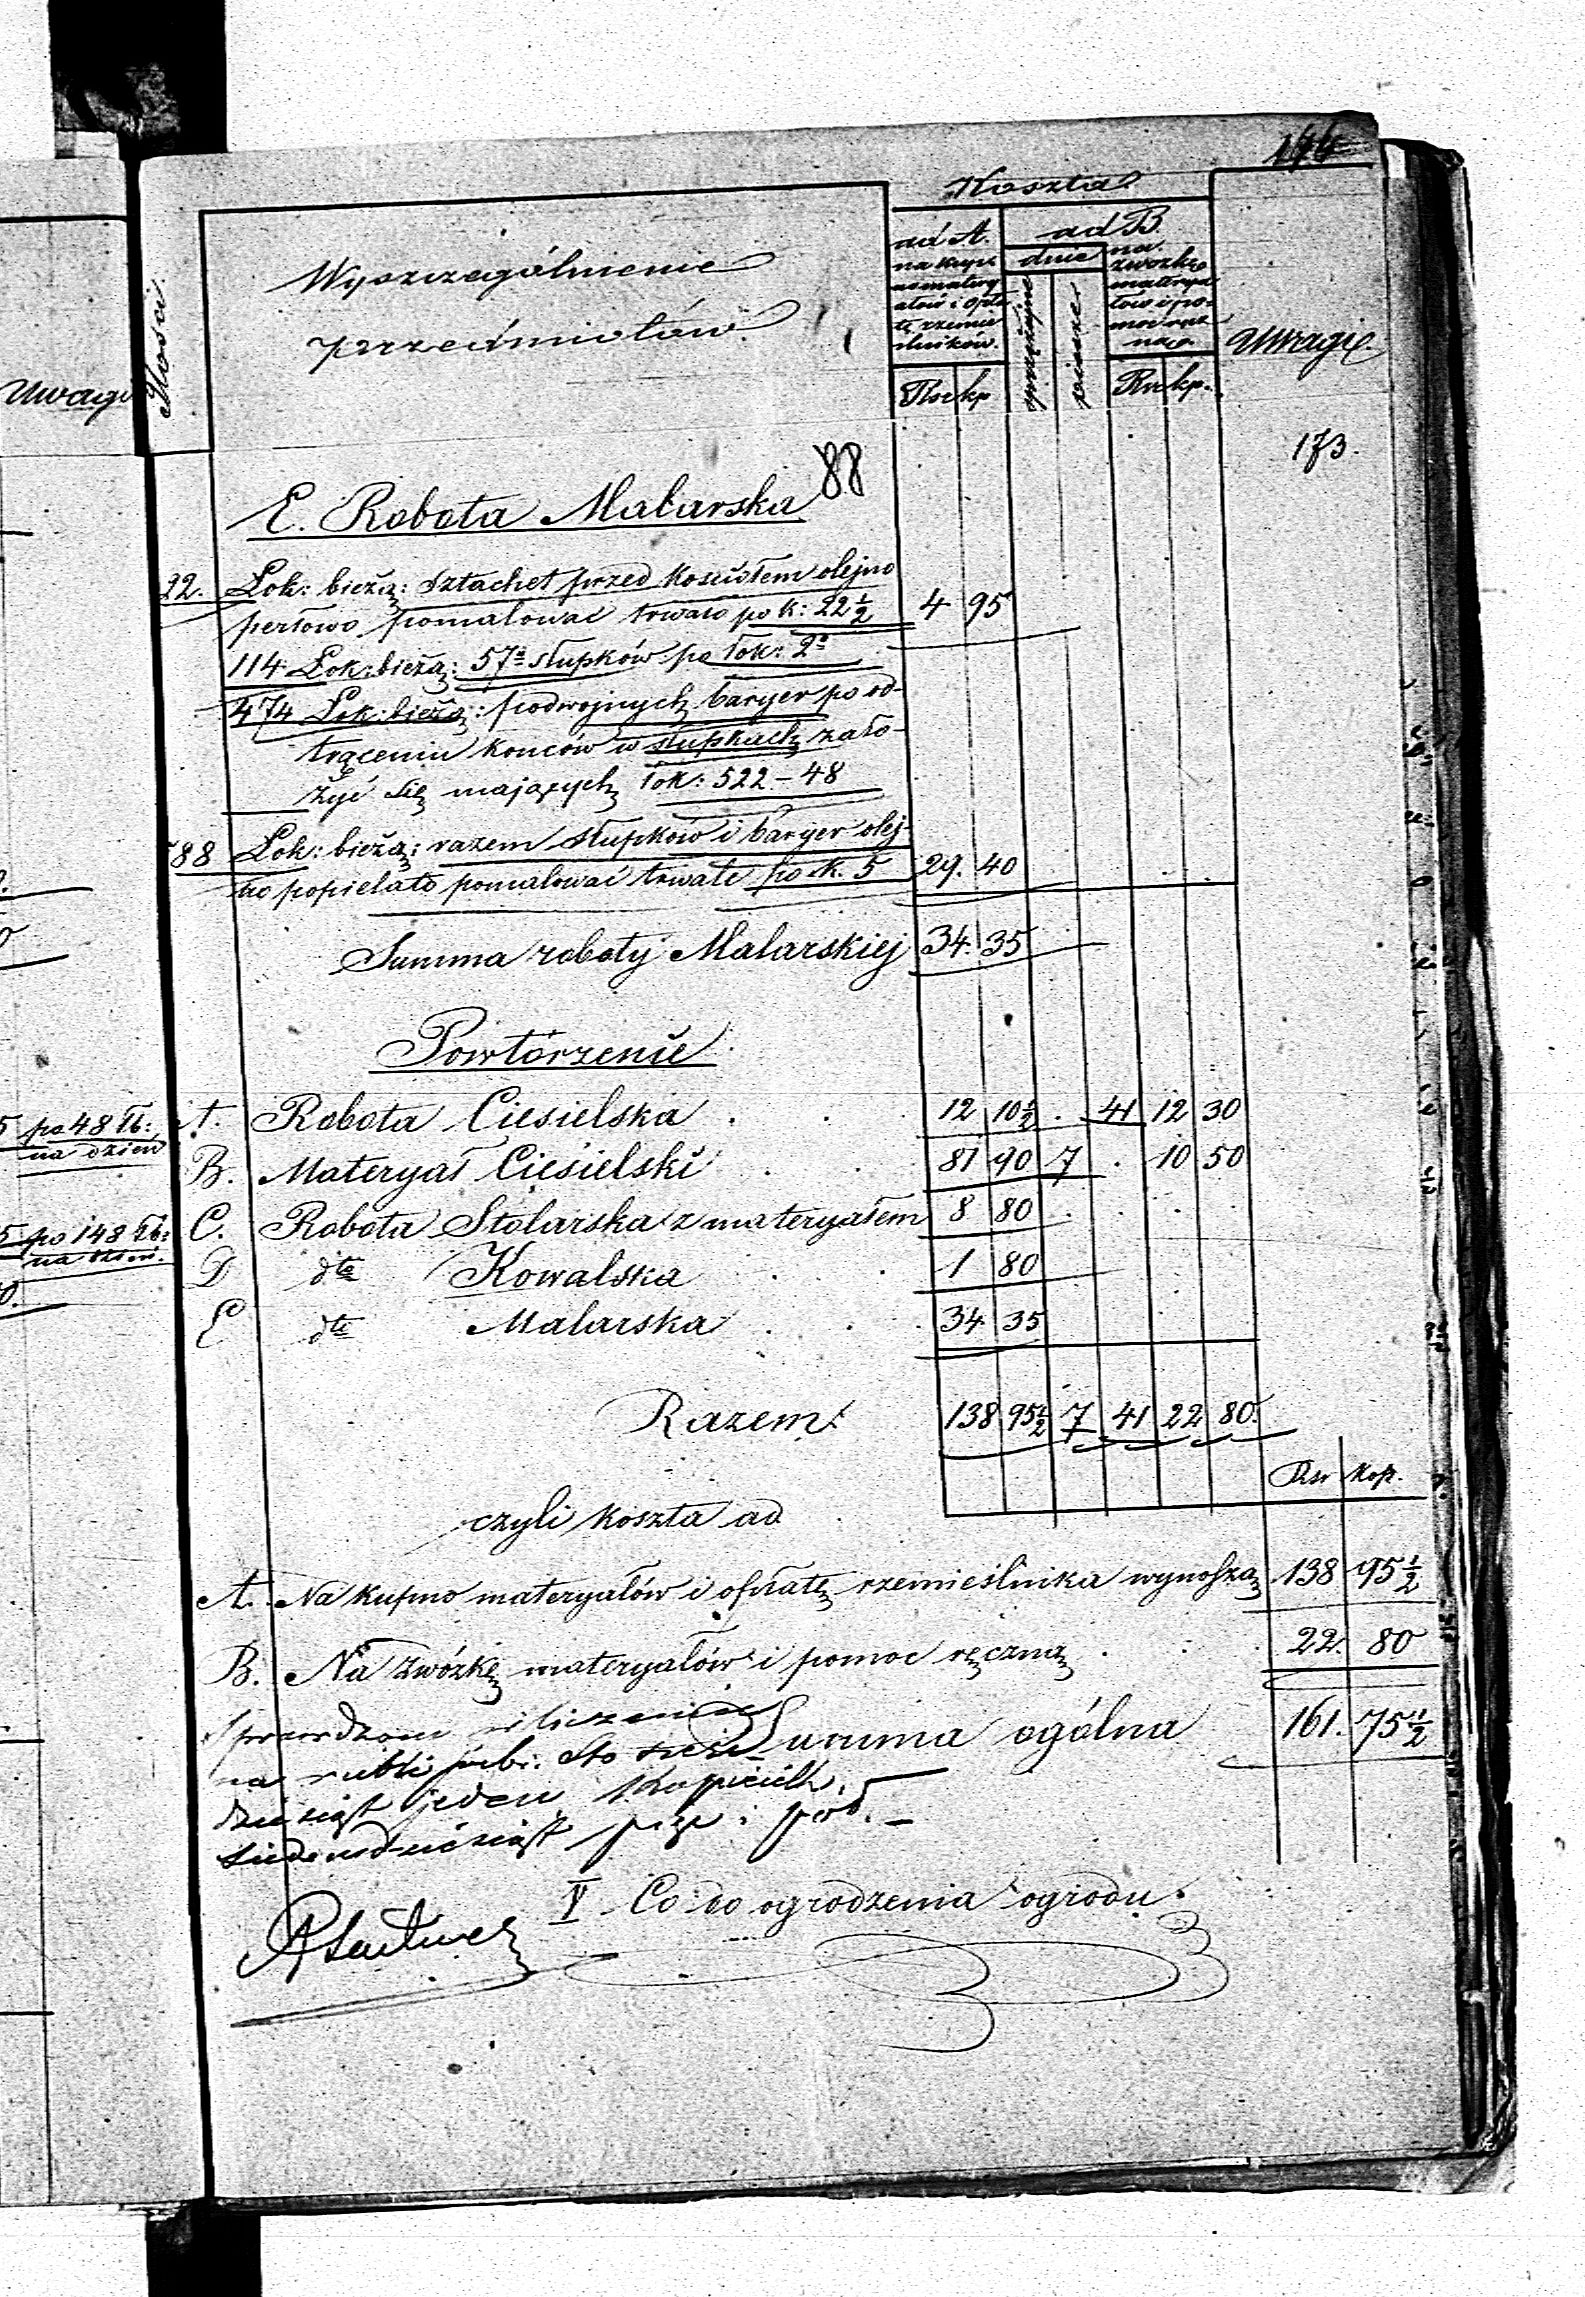 146
Koszta
Ilości
Wyszczególnienie
przedmiotów.
ad A.
na kupno materyałów i opłatę rzemieślników.
ad B.
dnie
sprzężajne
piesze
na zwózkę materyałów i pomoc ręczną
Uwagi
Rsr kp
Rsr kp.
Uwagi
173.
88
E. Robota Malarska
22. Łok: bieżą: Sztachet przed Kosciołem olejno
perłowo pomalować trwało po k: 22 1/2 4 95
114 Łok: bieżą: 57 słupków po łok: 2
474 Łok: bieżą: podwojnych baryer po od-
trąceniu konców w słupkach zało-
żyć się mających łok: 522 - 48
588 Łok: bieżą: razem słupków i baryer olej-
no popielato pomalować trwale po k. 5 29. 40
Summa roboty Malarskiej 34. 35
Powtórzenie
A. Robota Ciesielska . . 12 10 1/2 . 41 12 30
B. Materyał Ciesielski . . 81 90 7 . 10 50
C. Robota Stolarska z materyałem 8 80
D dto Kowalska . . . 1 80
E dto Malarska . . . 34 35
Razem 138 95 1/2 7 41 22 80.
Rsr Kop.
czyli koszta ad
A. Na kupno materyałów i opłatę rzemieślnika wynoszą 138 95 1/2
B. Na zwózkę materyałów i pomoc ręczną . . . 22. 80
Summa ogólna 161. 75 1/2
Sprawdzono i liczenie
na rubli srebr: Sto sześć-
dziesiąt jeden kopiejek
siedemdziesiąt pięć i pół. –
V Co do ogrodzenia ogrodu.
5 po 48 łb:
na dzien
5 po 148 łb:
na dzien.